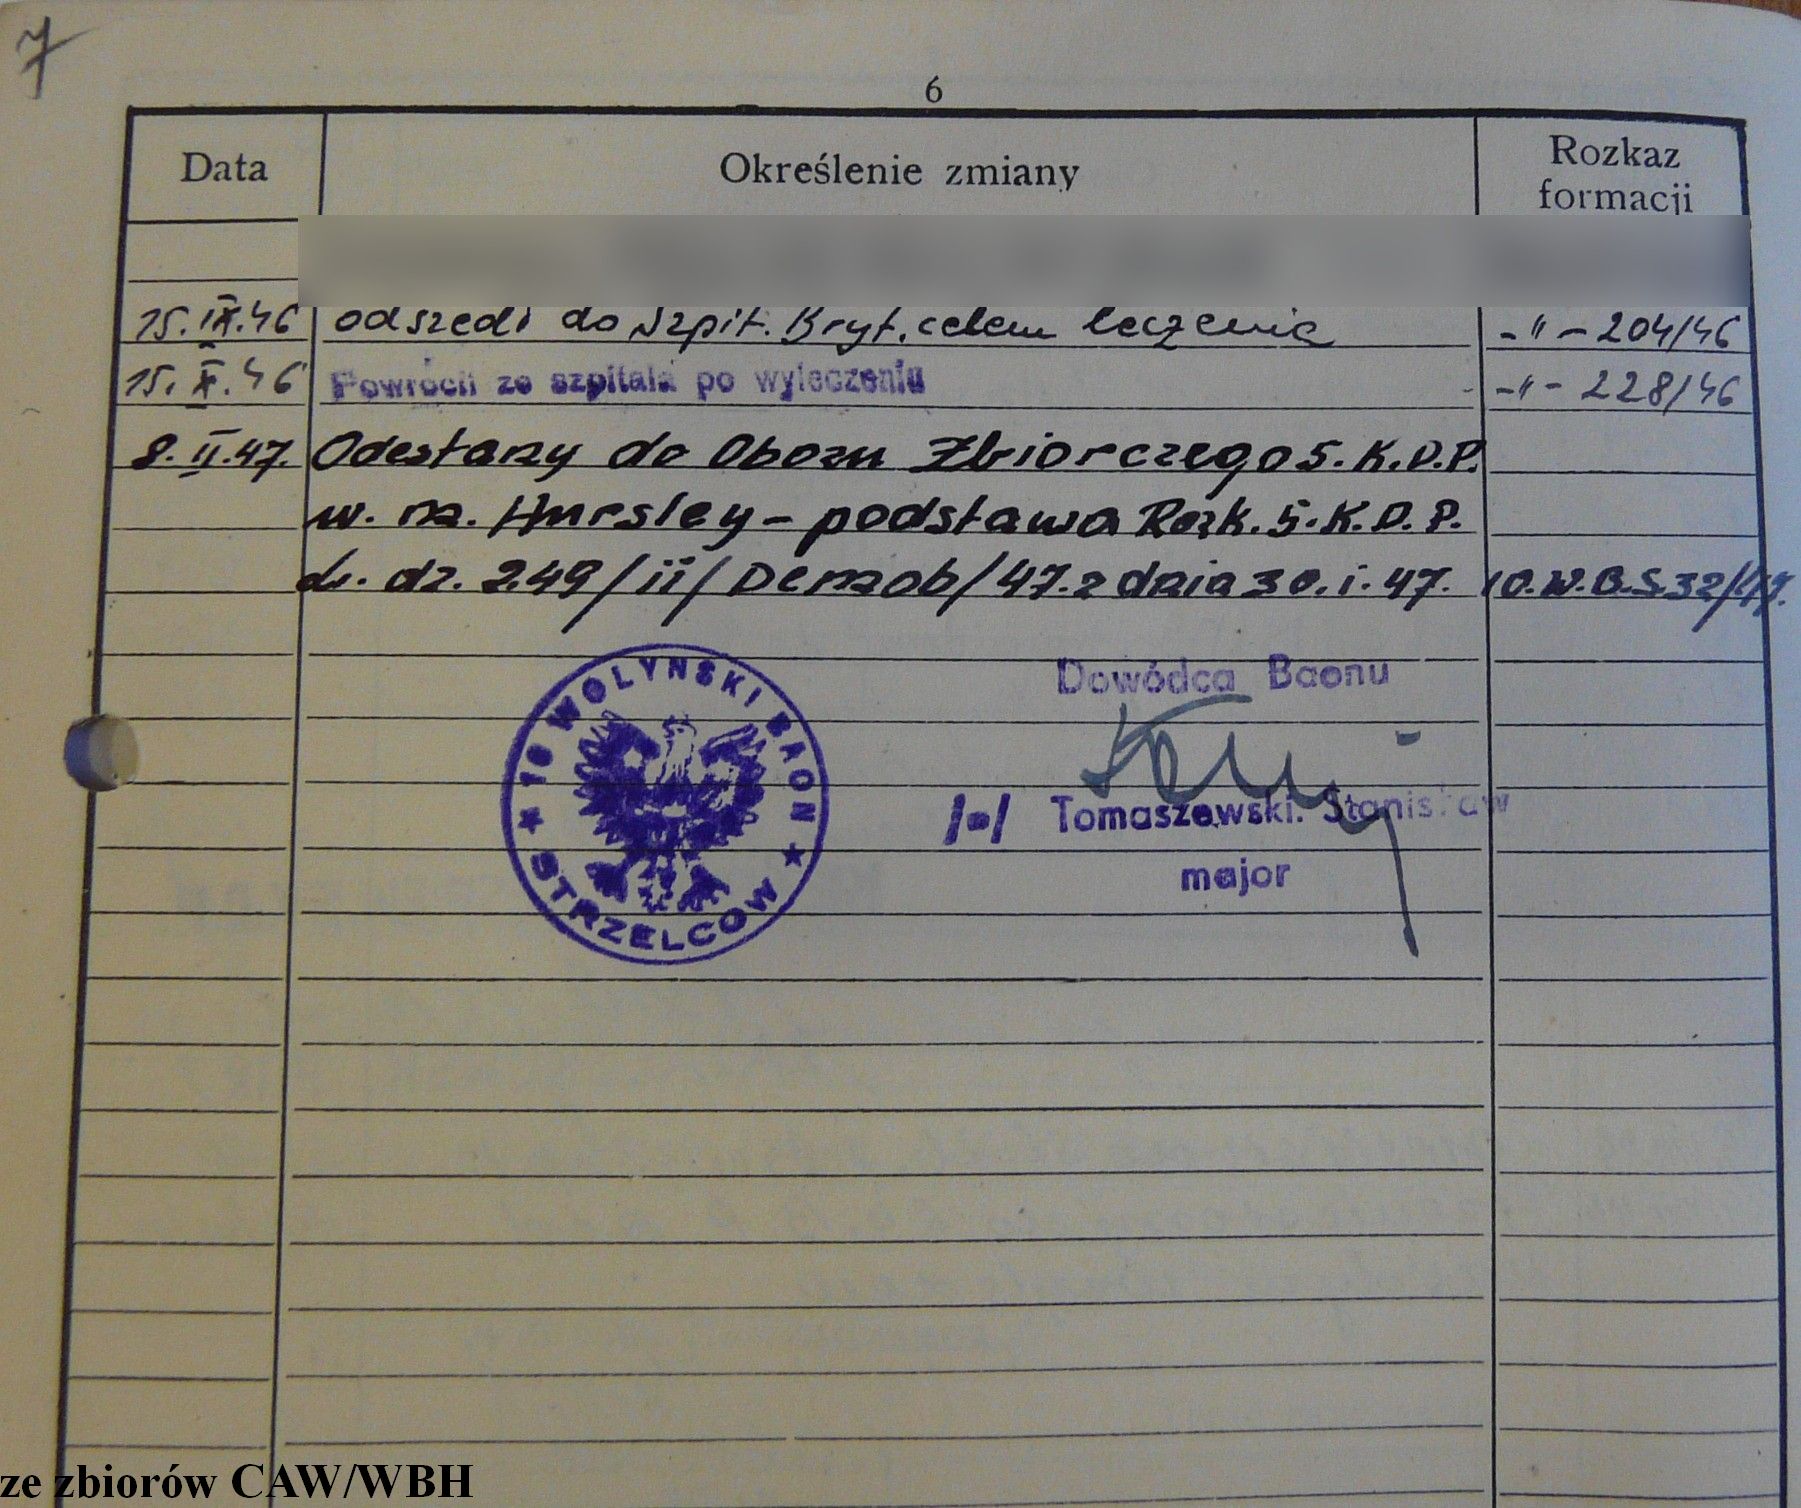 7
6
Data Określenie zmiany Rozkaz formacji
15.IX.46 odszedł do Szpit. Bryt. celem leczenia -"- 204/46
15.X.46 Powrócił ze szpitala po wyleczeniu -"- 228/46
8.II.47. Odesłany do Obozu Zbiorczego 5.K.D.P.
w m. Hursley - podstawa Rozk. 5.K.D.P.
L. dz. 249/II/Demob/47. z dnia 30.I.47. 10.W.B.S.32/47.
Dowódca Baonu
10 WOLYNSKI BAON STRZELCOW
/-/ Tomaszewski Stanisław
major
ze zbiorów CAW/WBH